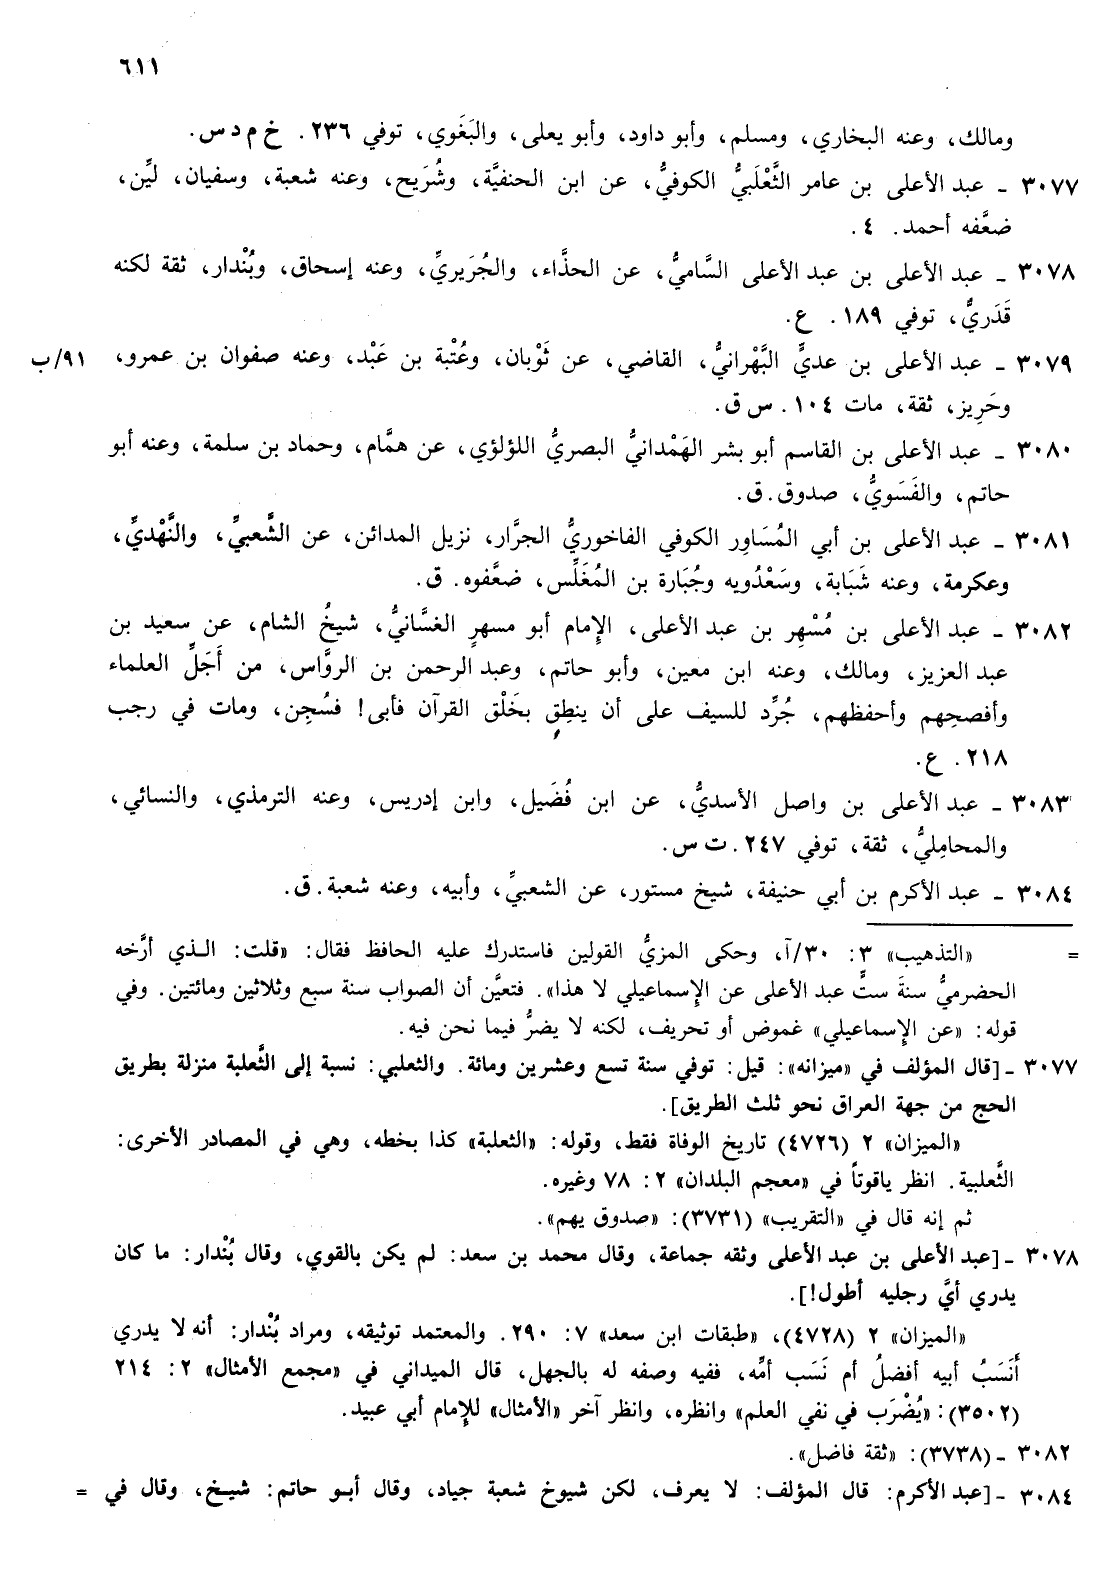 ٦١١
ومالك، وعنه البخاري، ومسلم، وأبو داود، وأبو يعلى، والبَغَوي، توفي ٢٣٦. خ م د س.
٣٠٧٧ ـ عبد الأعلى بن عامر الثَّعْلَبيُّ الكوفيُّ، عن ابن الحنفيَّة، وشُرَيح، وعنه شعبة، وسفيان، ليِّن،
ضعَّفه أحمد. ٤.
٣٠٧٨ ـ عبد الأعلى بن عبد الأعلى السَّاميُّ، عن الحذَّاء، والجُرَيريِّ، وعنه إسحاق، وبُنْدار، ثقة لكنه
قَدَريٌّ، توفي ١٨٩. ع.
٣٠٧٩ ـ عبد الأعلى بن عديٍّ البَّهْرانيُّ، القاضي، عن ثَوْبان، وعُتْبة بن عَبْد، وعنه صفوان بن عمرو، ٩١/ب
وحَرِيز، ثقة، مات ١٠٤. س ق.
٣٠٨٠ ـ عبد الأعلى بن القاسم أبو بشر الهَمْدانيُّ البصريُّ اللؤلؤي، عن همَّام، وحماد بن سلمة، وعنه أبو
حاتم، والفَسَويُّ، صدوق. ق.
٣٠٨١ ـ عبد الأعلى بن أبي المُسَاوِر الكوفي الفاخوريُّ الجرَّار، نزيل المدائن، عن الشَّعبيِّ، والنَّهْديِّ،
وعكرمة، وعنه شَبَابة، وسَعْدُويه وجُبَارة بن المُغَلِّس، ضعَّفوه. ق.
٣٠٨٢ ـ عبد الأعلى بن مُسْهِر بن عبد الأعلى، الإمام أبو مسهرٍ الغسَّانيُّ، شيخُ الشام، عن سعيد بن
عبد العزيز، ومالك، وعنه ابن معين، وأبو حاتم، وعبد الرحمن بن الروَّاس، من أَجَلِّ العلماء
وأفصحِهم وأحفظهم، جُرِّد للسيف على أن ينطِقٍ بخَلْق القرآن فأبى! فسُجِن، ومات في رجب
٢١٨. ع.
٣٠٨٣ ـ عبد الأعلى بن واصل الأسديُّ، عن ابن فُضَيل، وابن إدريس، وعنه الترمذي، والنسائي،
والمحامِليُّ، ثقة، توفي ٢٤٧. ت س.
٣٠٨٤ ـ عبد الأكرم بن أبي حنيفة، شيخ مستور، عن الشعبيِّ، وأبيه، وعنه شعبة. ق.
= «التذهيب» ٣: ٣٠/آ، وحكى المزيُّ القولين فاستدرك عليه الحافظ فقال: «قلت: الـذي أرَّخه
الحضرميُّ سنةَ ستٍّ عبد الأعلى عن الإسماعيلي لا هذا». فتعيَّن أن الصواب سنة سبع وثلاثين ومائتين. وفي
قوله: «عن الإسماعيلي» غموض أو تحريف، لكنه لا يضرُّ فيما نحن فيه.
٣٠٧٧ ـ [قال المؤلف في «ميزانه»: قيل: توفي سنة تسع وعشرين ومائة. والثعلبي: نسبة إلى الثَّعلبة منزلة بطريق
الحج من جهة العراق نحو ثلث الطريق].
«الميزان» ٢ (٤٧٢٦) تاريخ الوفاة فقط، وقوله: «الثعلبة» كذا بخطه، وهي في المصادر الأخرى:
الثَّعلبية. انظر ياقوتاً في «معجم البلدان» ٢: ٧٨ وغيره.
ثم إنه قال في «التقريب» (٣٧٣١): «صدوق يهم».
٣٠٧٨ ـ [عبد الأعلى بن عبد الأعلى وثقه جماعة، وقال محمد بن سعد: لم يكن بالقوي، وقال بُنْدار: ما كان
يدري أيَّ رجليه أطول!].
«الميزان» ٢ (٤٧٢٨)، «طبقات ابن سعد» ٧: ٢٩٠. والمعتمد توثيقه، ومراد بُنْدار: أنه لا يدري
أَنَسَبُ أبيه أفضلُ أم نَسَب أمِّه، ففيه وصفه له بالجهل، قال الميداني في «مجمع الأمثال» ٢: ٢١٤
(٣٥٠٢): «يُضْرَب في نفي العلم» وانظره، وانظر آخر «الأمثال» للإمام أبي عبيد.
٣٠٨٢ ـ (٣٧٣٨): «ثقة فاضل».
٣٠٨٤ ـ [عبد الأكرم: قال المؤلف: لا يعرف، لكن شيوخ شعبة جياد، وقال أبـو حاتم: شيـخ، وقال في =